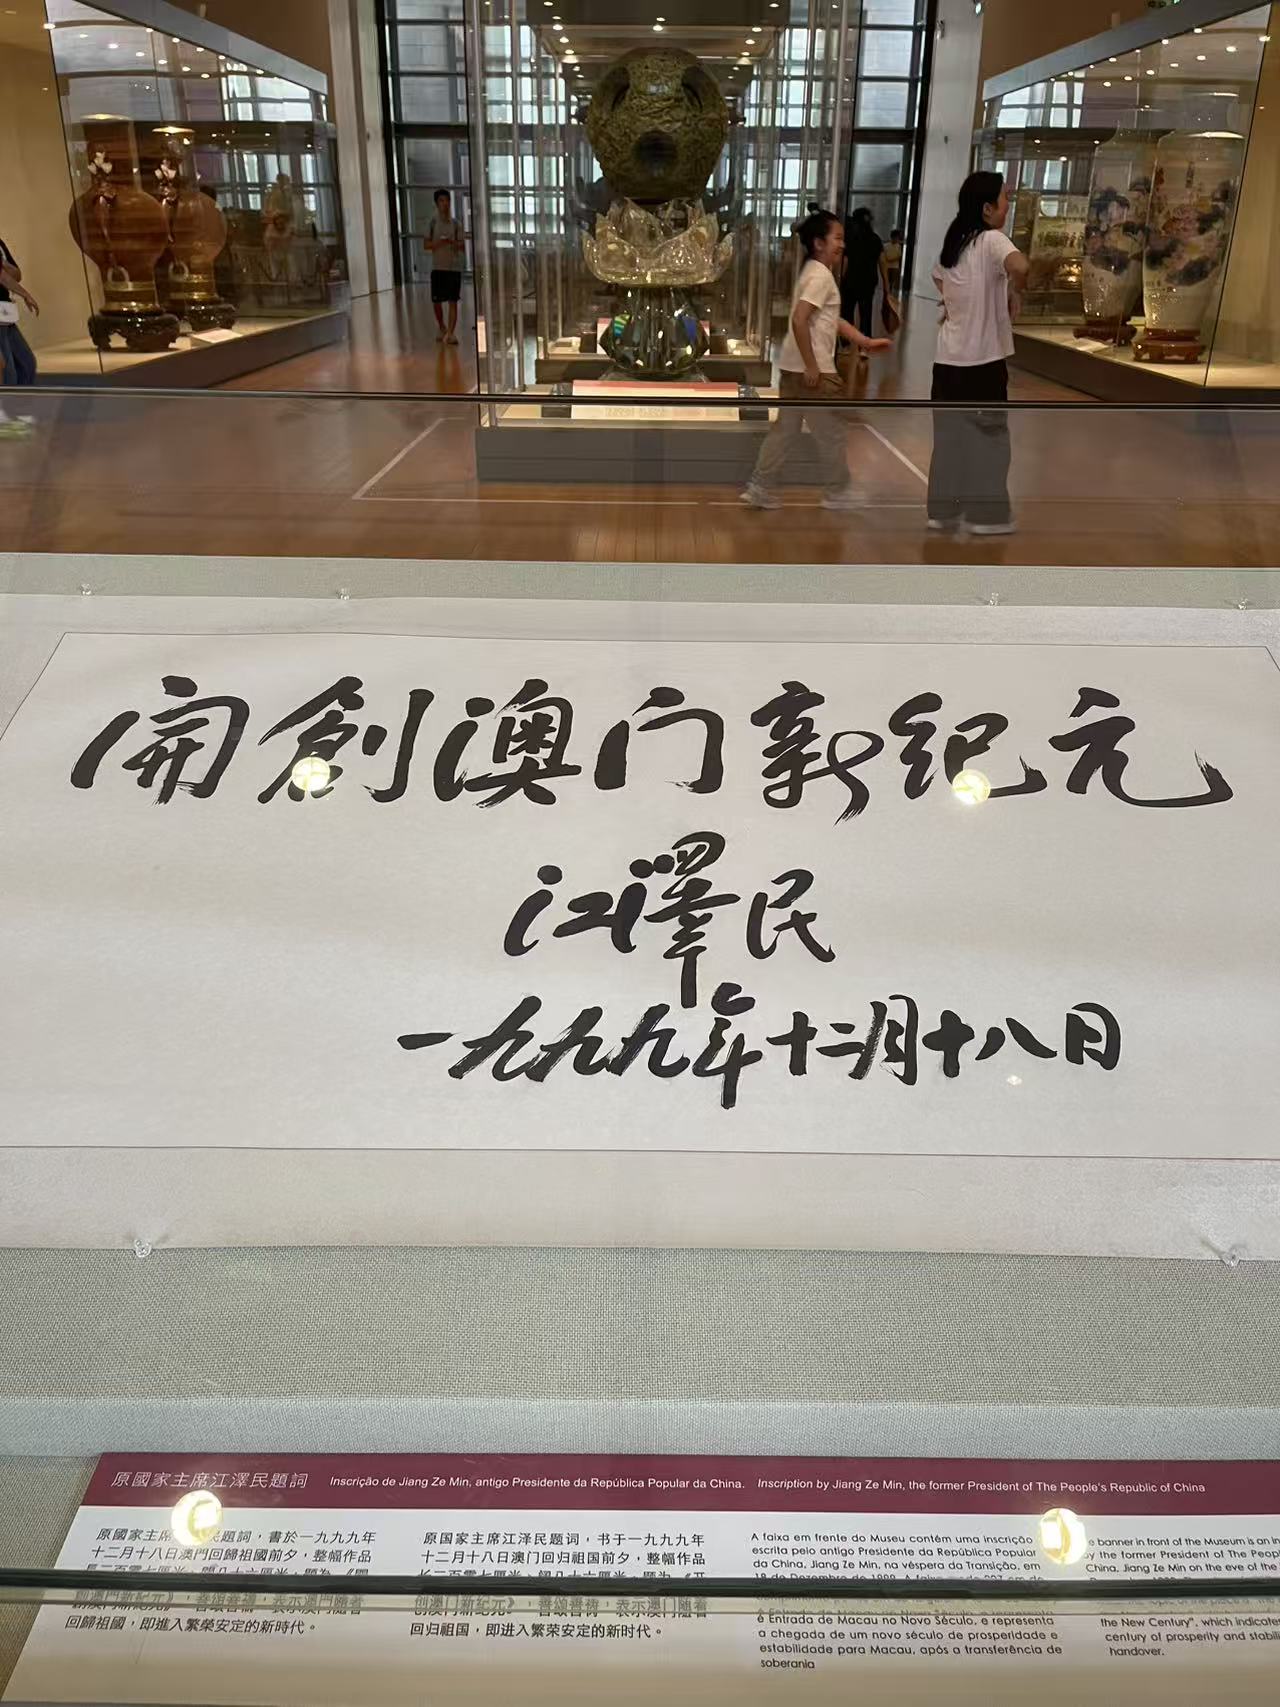 開創澳门新纪元
江澤民
一九九九年十二月十八日
原國家主席江澤民題詞 Inscrição de Jiang Ze Min, antigo Presidente da República Popular da China. Inscription by Jiang Ze Min, the former President of The People's Republic of China
原國家主席 民題詞，書於一九九九年
十二月十八日澳門回歸祖國前夕，整幅作品
創澳門新紀元》，善頌善禱，表示澳門隨著
回歸祖國，即進入繁榮安定的新時代。
原国家主席江泽民题词，书于一九九九年
十二月十八日澳门回归祖国前夕，整幅作品
长二百零七厘米，阔八十六厘米，题为《开
创澳门新纪元》，善颂善祷，表示澳门随着
回归祖国，即进入繁荣安定的新时代。
A faixa em frente do Museu contém uma inscrição
escrita pelo antigo Presidente da República Popular
da China, Jiang Ze Min, na véspera da Transição, em
18 de Dezembro de 1999. A faixa
é Entrada de Macau no Novo Século, e representa
a chegada de um novo século de prosperidade e
estabilidade para Macau, após a transferência de
soberania
banner in front of the Museum is an
by the former President of The
China, Jiang Ze Min on the eve of the
the New Century", which
century of prosperity and
handover.